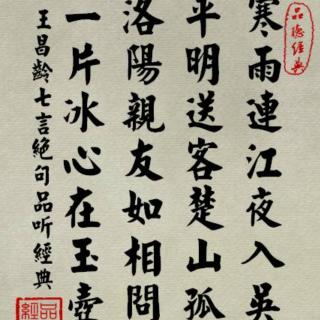 寒雨連江夜入吴
平明送客楚山孤
洛陽親友如相問
一片冰心在玉壺
王昌齡七言絕句品听經典
品聽經典